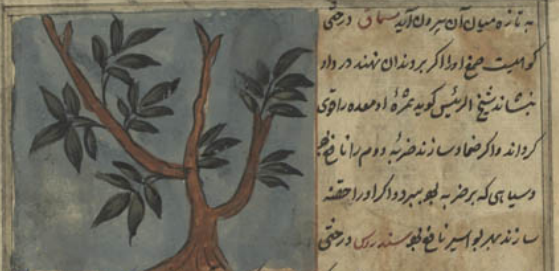 به تازه میان آن بیرون آید سماق درختی
کوهیست صمغ او را اگر بر دندان نهند درد او
بنشاند شیخ الرئیس گوید ثمرهٔ او معده را قوی
گرداند و اگر ضماد سازند ضربه و ورم را نافع بود
و سیاهی که بر ضربه بود ببرد و اگر او را حقنه
سازند بهر بواسیر نافع بود سندروس درختی